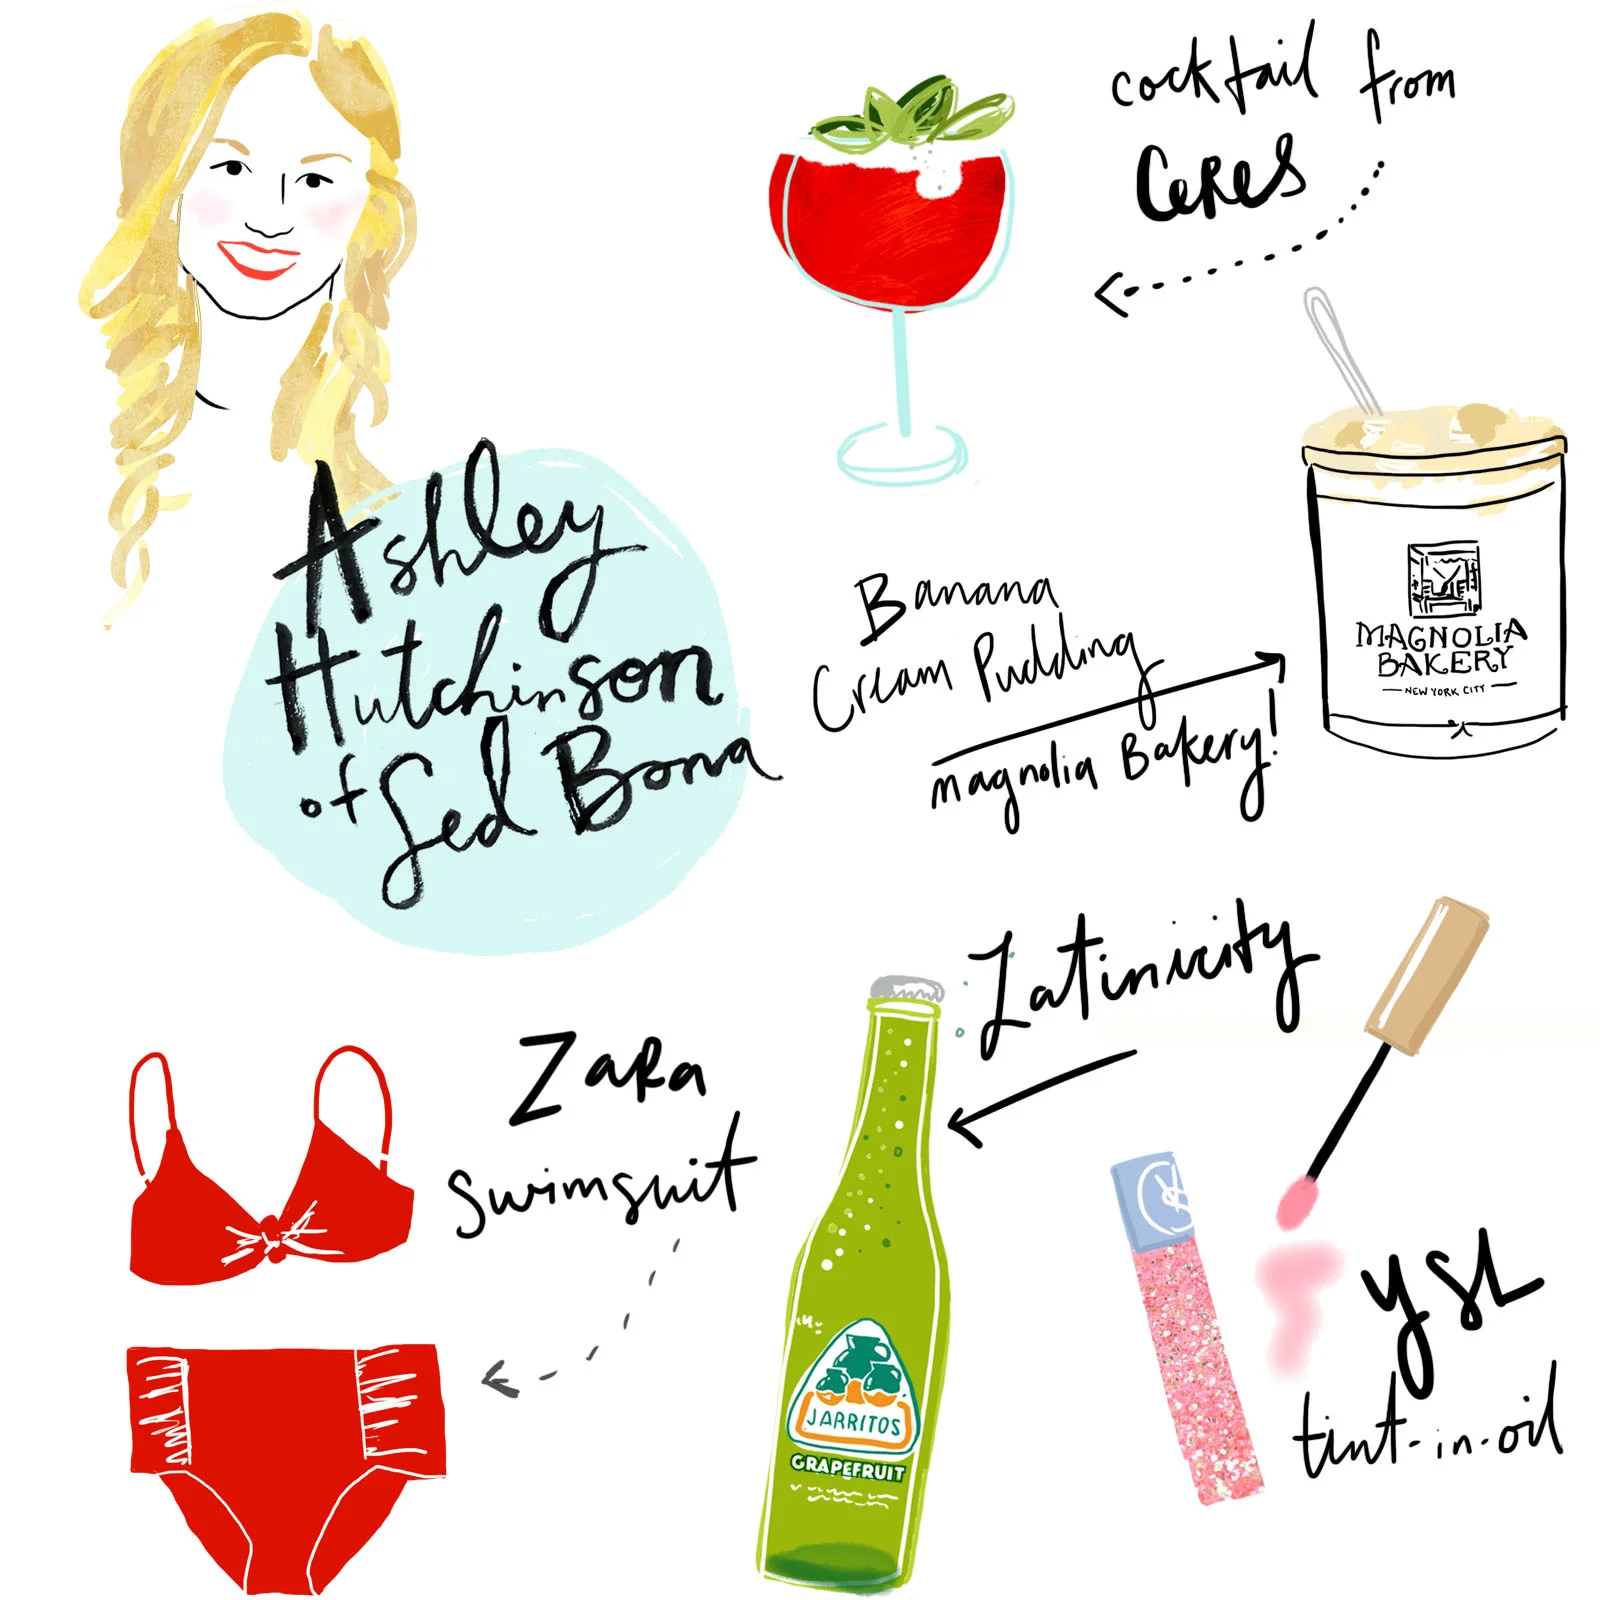 Ashley
Hutchinson
of Sed Bona
cocktail from
Ceres
Banana
Cream Pudding
magnolia Bakery!
MAGNOLIA
BAKERY
NEW YORK CITY
Latinicity
JARRITOS
GRAPEFRUIT
Zara
swimsuit
YSL
tint-in-oil